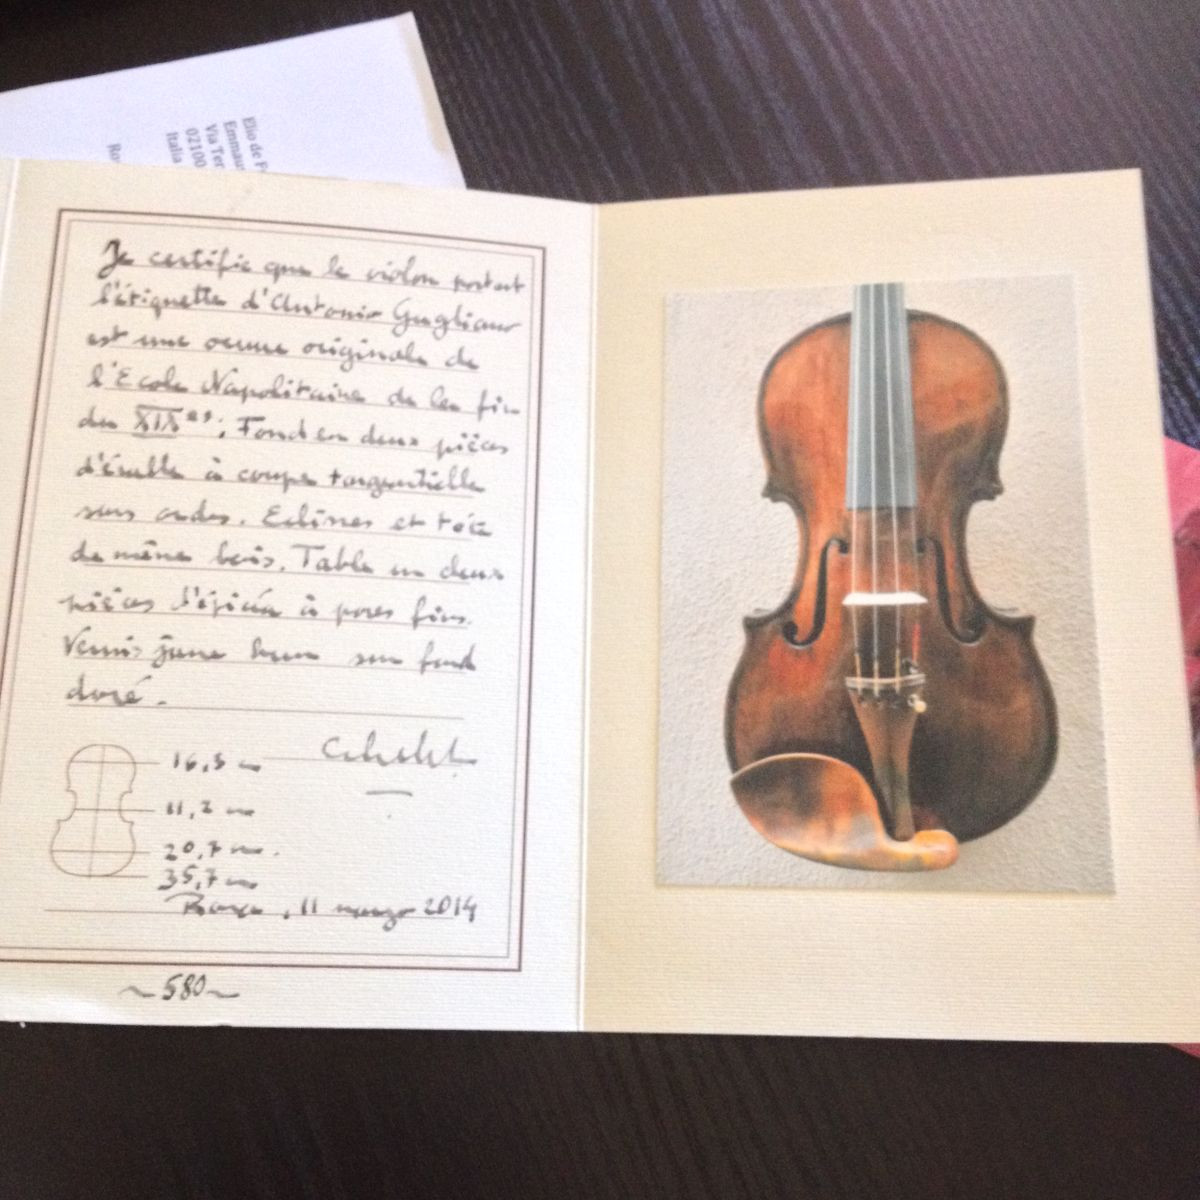 Elio de
Emmau
Via Ter
02100
Italia
Je certifie que le violon portant
l'étiquette d'Antonio Gagliano
est une oeuvre originale de
l'Ecole Napolitaine de la fin
du XIX es; Fond en deux pièces
d'érable à coupe tangentielle
sans ondes. Eclisses et tête
de même bois. Table en deux
pièces d'épicéa à pores fins.
Vernis jaune brun sur fond
doré.
16,5 cm
11,2 cm
20,7 cm.
35,7 cm
, 11 marzo 2014
~580~